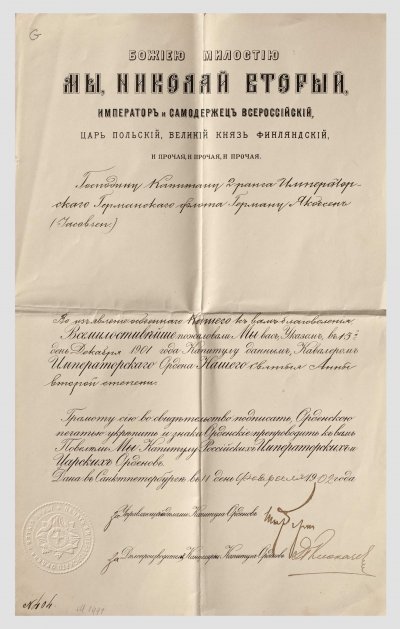 G
БОЖІЕЮ МИЛОСТІЮ
МЫ, НИКОЛАЙ ВТОРЫЙ,
ИМПЕРАТОРЪ и САМОДЕРЖЕЦЪ ВСЕРОССІЙСКІЙ,
ЦАРЬ ПОЛЬСКІЙ, ВЕЛИКІЙ КНЯЗЬ ФИНЛЯНДСКІЙ,
И ПРОЧАЯ, И ПРОЧАЯ, И ПРОЧАЯ.
Господину Капитану 2 ранга Император-
скаго Германскаго флота Герману Якобсенъ
(Jacobsen)
Во изъявленіе особеннаго Нашего къ вамъ благоволенія,
Всемилостивѣйше пожаловали Мы васъ, Указомъ, въ 13
день Декабря 1901 года Капитулу даннымъ, Кавалеромъ
Императорскаго Ордена Нашего Святыя Анны
второй степени.
Грамоту сію во свидѣтельство подписать, Орденскою
печатью укрѣпить и знаки Орденскіе препроводить къ вамъ
Повелѣли Мы Капитулу Россійскихъ Императорскихъ и
Царскихъ Орденовъ.
Дана въ Санктпетербургѣ, въ 11 день Февраля 1902 года
За Управляющаго дѣлами Капитула Орденовъ
За Дѣлопроизводителя Канцеляріи Капитула Орденовъ
№ 404